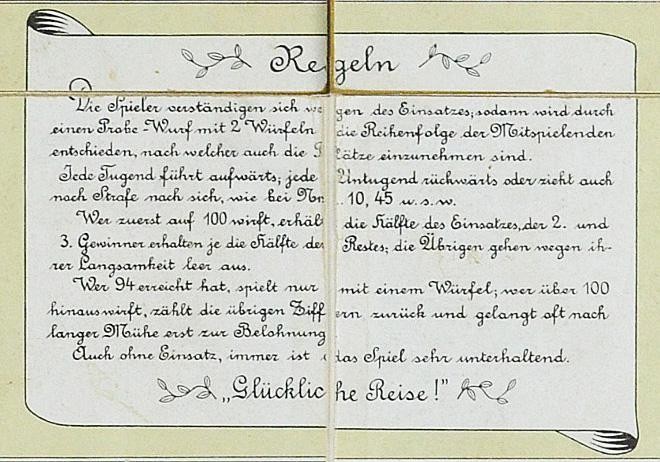 Regeln
Die Spieler verständigen sich wegen des Einsatzes; sodann wird durch
einen Probe-Wurf mit 2 Würfeln die Reihenfolge der Mitspielenden
entschieden, nach welcher auch die Plätze einzunehmen sind.
Jede Tugend führt aufwärts; jede Untugend rückwärts oder zieht auch
noch Strafe nach sich, wie bei 10, 45 u. s. w.
Wer zuerst auf 100 wirft, erhält die Hälfte des Einsatzes, der 2. und
3. Gewinner erhalten je die Hälfte des Restes; die Übrigen gehen wegen ih-
rer Langsamkeit leer aus.
Wer 94 erreicht hat, spielt nur mit einem Würfel; wer über 100
hinauswirft, zählt die übrigen Ziffern zurück und gelangt oft nach
langer Mühe erst zur Belohnung
Auch ohne Einsatz, immer ist das Spiel sehr unterhaltend.
„Glückliche Reise!"